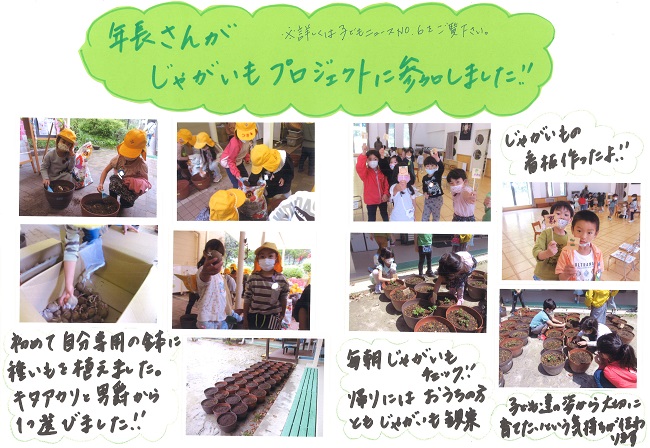 年長さんが
※詳しくは子どもニュースNO.6をご覧下さい。
じゃがいもプロジェクトに参加しました!!
じゃがいもの
看板作ったよ!!
初めて自分専用の鉢に
種いもを植えました。
キタアカリと男爵から
1つ選びました!!
毎朝じゃがいも
チェック!!
帰りにはおうちの方
ともじゃがいも観察
子ども達の姿から大切に
育てたいという気持ちが伝わ
ります